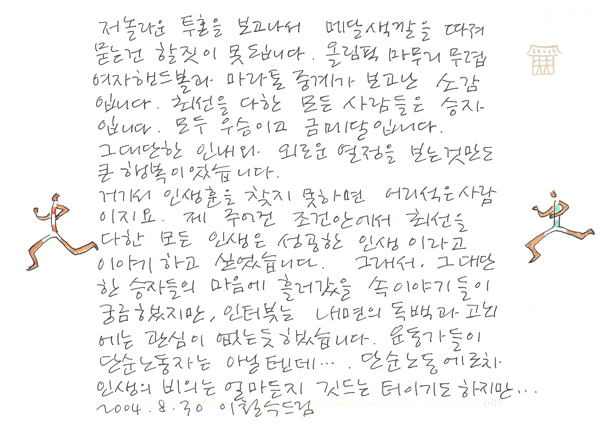 저놀라운 투혼을 보고나서 메달색깔을 따져
묻는건 할짓이 못됩니다. 올림픽 마무리 무렵
여자핸드볼과 마라톤 중계가 보고난 소감
입니다. 최선을 다한 모든 사람들은 승자
입니다. 모두 우승이고 금메달입니다.
그대단한 인내와 외로운 열정을 보는것만도
큰 행복이었습니다.
거기서 인생훈을 찾지 못하면 어리석은사람
이지요. 제 주어진 조건안에서 최선을
다한 모든 인생은 성공한 인생이라고
이야기하고 싶었습니다. 그래서, 그대단
한 승자들의 마음에 흘러갔을 속이야기들이
궁금했지만, 인터뷰는 내면의 독백과 고뇌
에는 관심이 없는듯했습니다. 운동가들이
단순노동자는 아닐텐데···. 단순노동에로차
인생의 비의는 얼마든지 깃드는 터이기도하지만···
2004.8.30 이철수드림